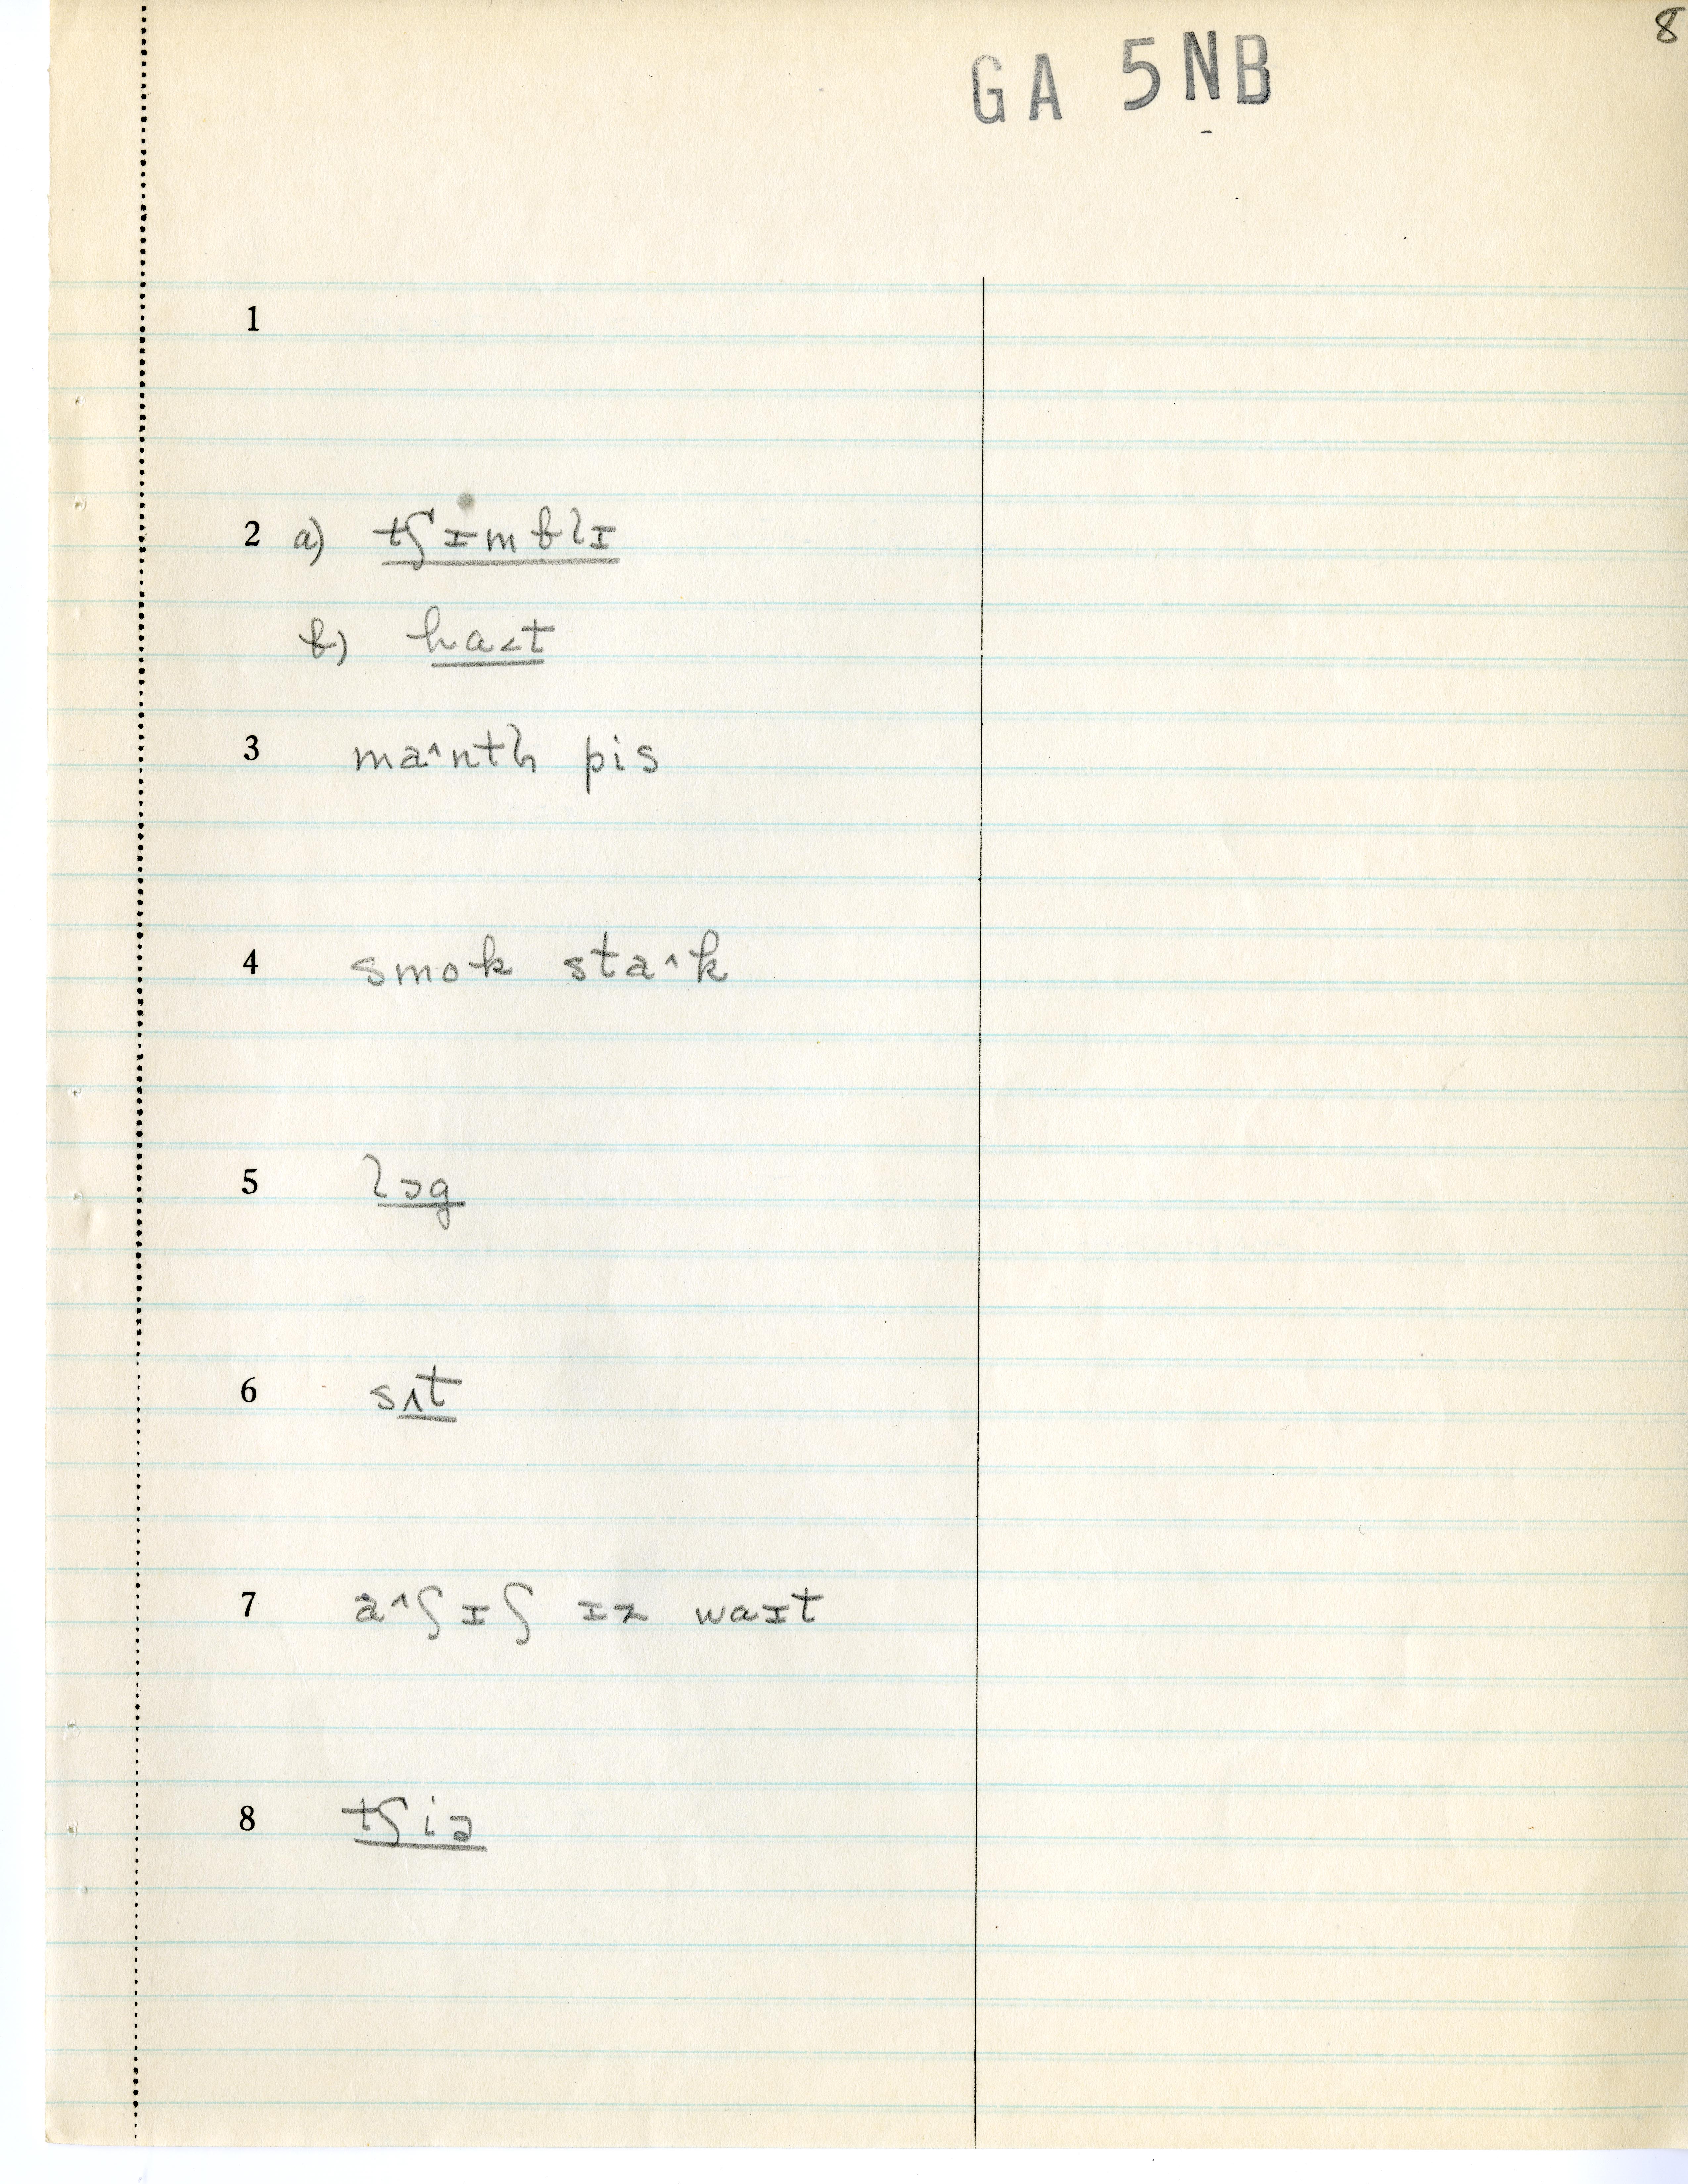 8
GA 5NB
1
2 a) tʃɪmblɪ
b) ha˂t
3 ma˄ntḷ pis
4 smok sta˄k
5 lɔg
6 sʌt
7 a˄ʃɪʃ ɪz waɪt
8 tʃiə